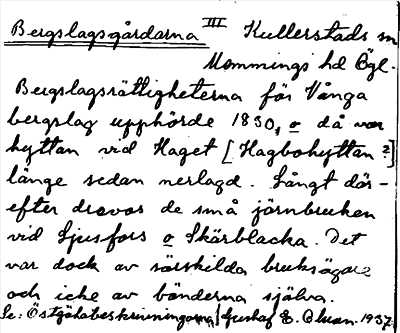 Bergslagsgårdarna III Kullerstads sn
Memmings hd Ögl.
Bergslagsrättigheterna för Vånga
bergslag upphörde 1830, o då var
hyttan vid Haget [Hagbohyttan?]
länge sedan nerlagd. Långt där-
efter drevos de små järnbruken
vid Ljusfors o Skärblacka. Det
var dock av särskilda bruksägare
och icke av bönderna själva.
Se: Östgötabeskrivningarna / Gustaf E. 1937.